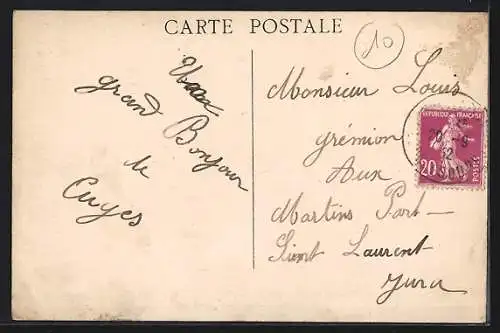 CARTE POSTALE
10
Un
grand Bonjour
de
Cuges
Monsieur Louis
grémion
Aux
Martins Part-
Sient Laurent
Jura
REPUBLIQUE FRANÇAISE
20
POSTES